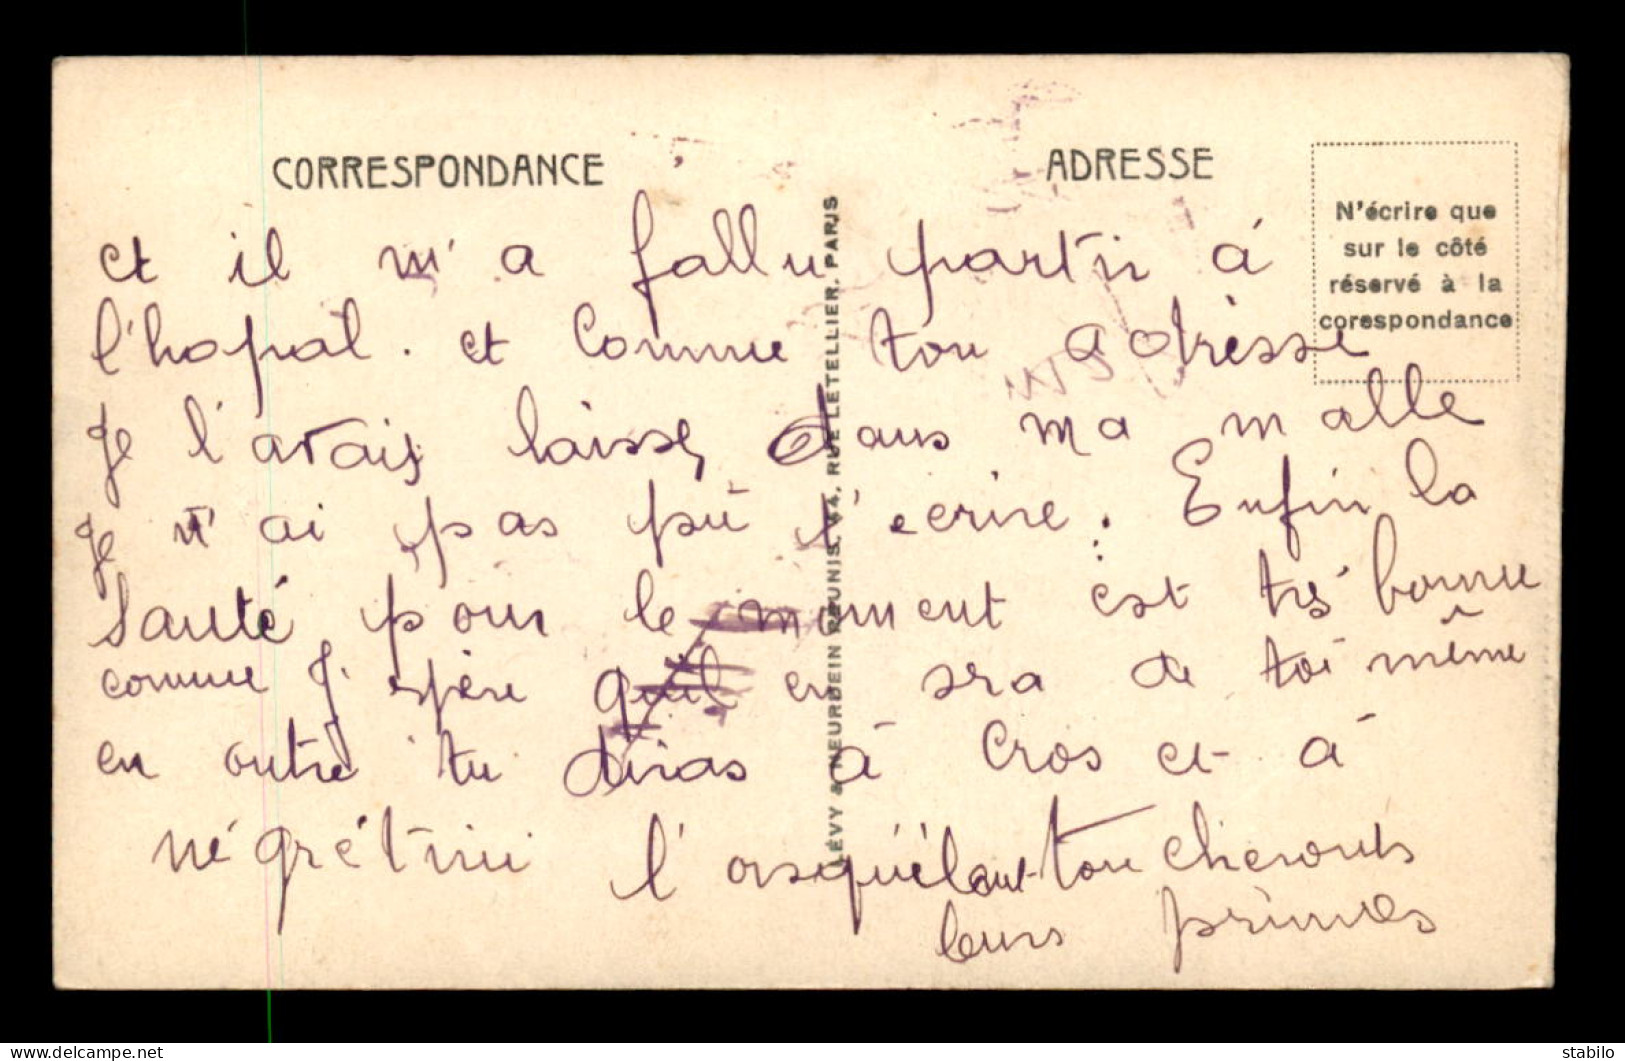 CORRESPONDANCE
ADRESSE
N'écrire que
sur le côté
réservé à la
corespondance
LÉVY & NEURDEIN RÉUNIS, 44, RUE LETELLIER, PARIS
et il m'a fallu partir á
l'hopital. et comme ton adrèsse
Je l'avais laissé dans ma malle
Je n'ai pas pü t'ecrire. Enfin la
Santé pour le moment est trés bonne
comme J'espère quil en sra de toi même
en outre tu diras á Cros et á
négrétini l'orsqu'él ton
leurs primes
stabilo